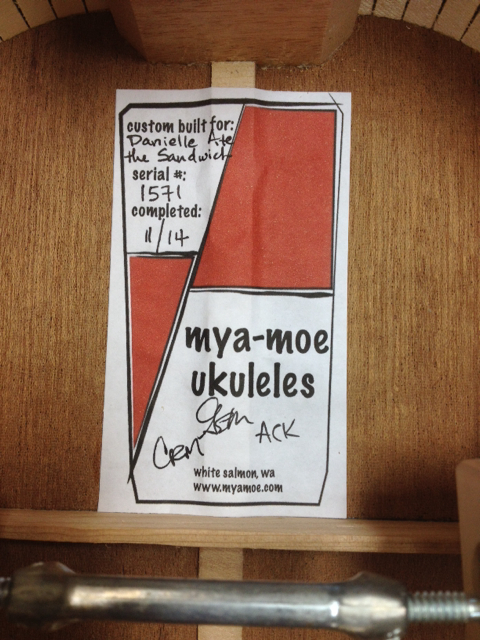 custom built for:
Danielle Ate
the Sandwich
serial #:
1571
completed:
11/14
mya-moe
ukuleles
CRM
ACK
white salmon, wa
www.myamoe.com